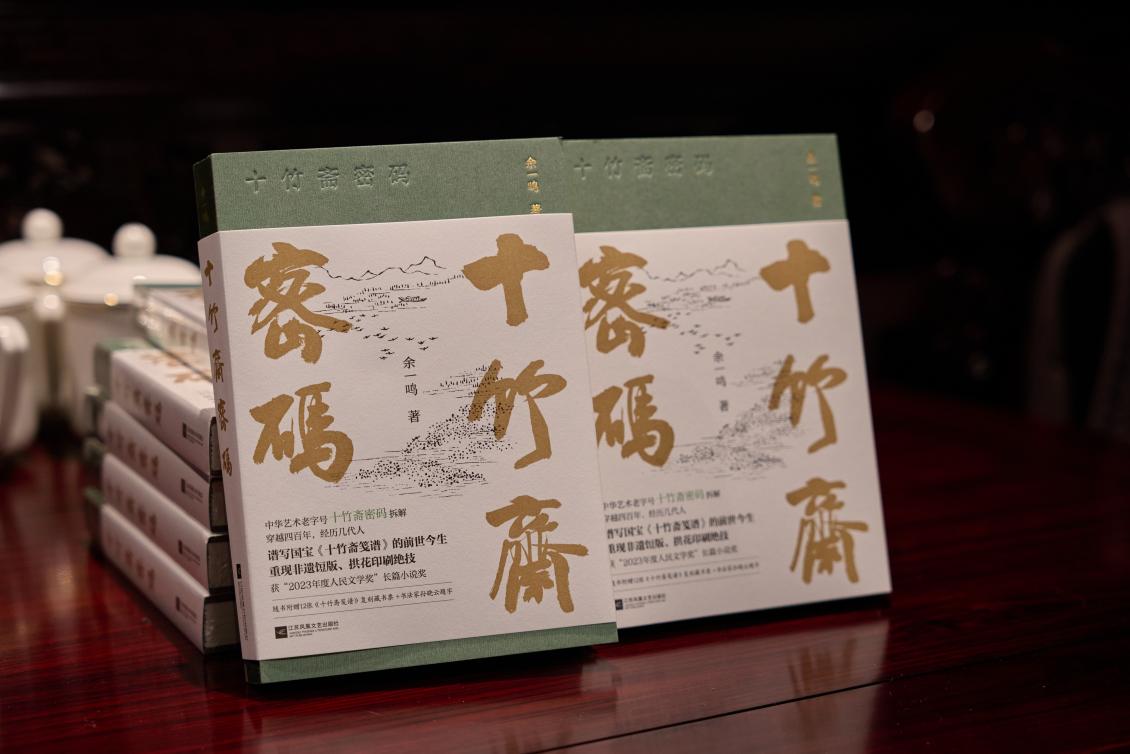 十竹斋密码
余一鸣 著
十竹齋
密碼
余一鸣 著
中华艺术老字号十竹斋密码拆解
穿越四百年，经历几代人
谱写国宝《十竹斋笺谱》的前世今生
重现非遗饾版、拱花印刷绝技
获“2023年度人民文学奖”长篇小说奖
随书附赠12张《十竹斋笺谱》复刻藏书票+书法家孙晓云题字
江苏凤凰文艺出版社
余一鸣
十竹齋密碼
十竹斋密码
余一鸣 著
十竹齋
密碼
余一鸣 著
中华艺术老字号十竹斋密码拆解
穿越四百年，经历几代人
谱写国宝《十竹斋笺谱》的前世今生
重现非遗饾版、拱花印刷绝技
获“2023年度人民文学奖”长篇小说奖
江苏凤凰文艺出版社